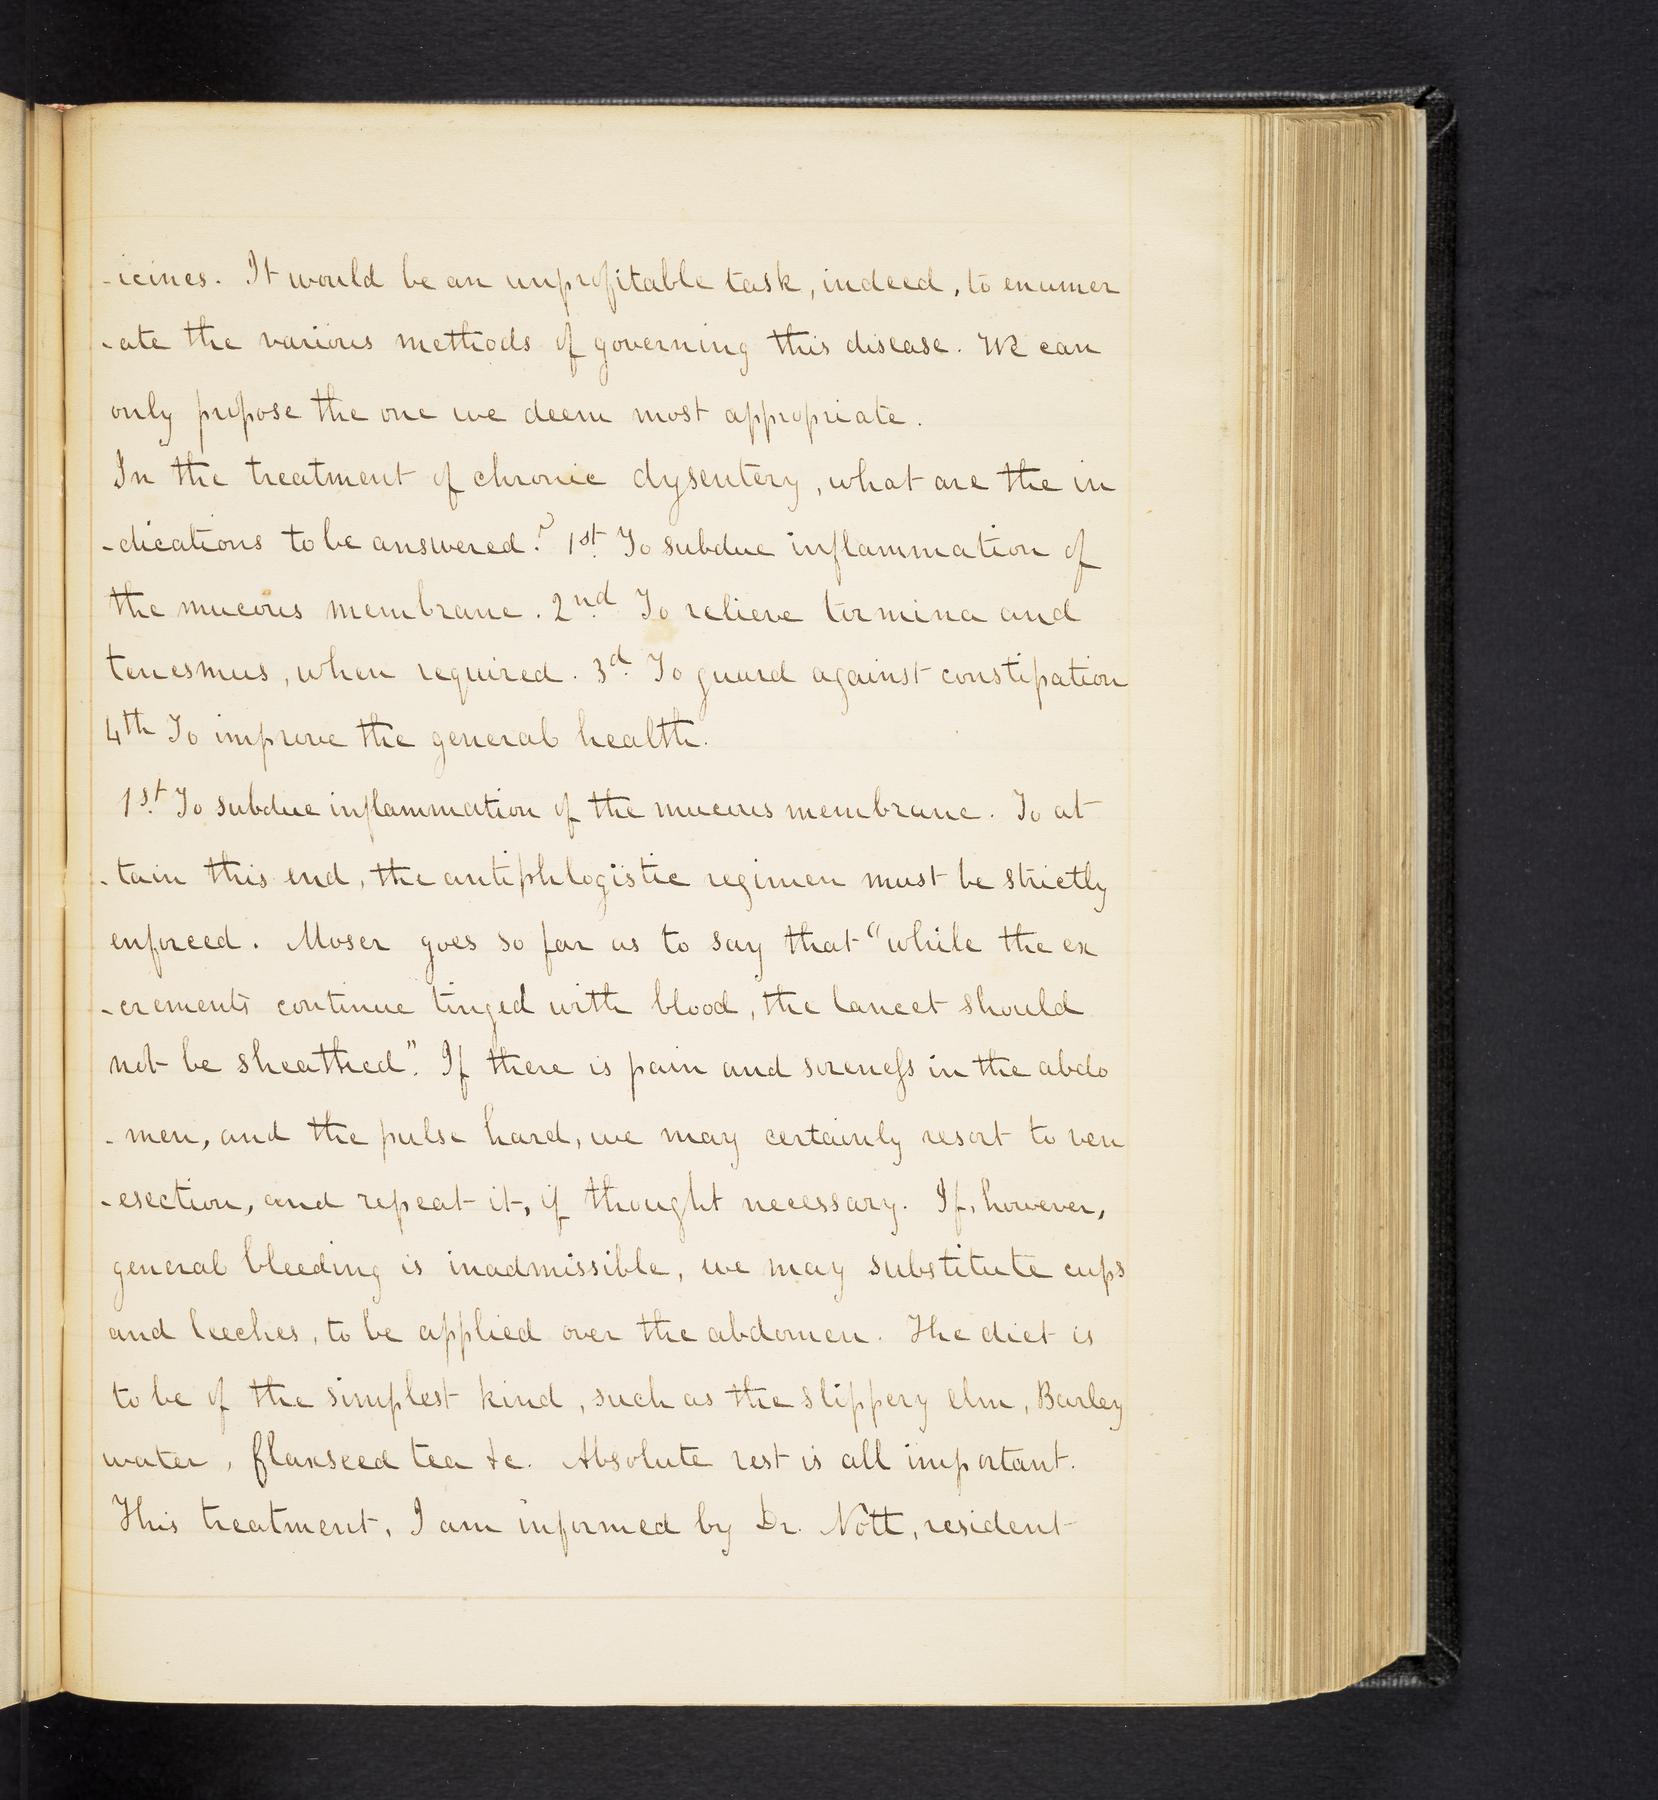 -icines. It would be an unprofitable task, indeed, to enumer
-ate the various methods of governing this disease. We can
only propose the one we deem most appropriate.
In the treatment of chronic dysentery, what are the in
-dications to be answered? 1st. To subdue inflammation of
the mucous membrane. 2nd. To relieve tormina and
tenesmus, when required. 3d. To guard against constipation
4th To improve the general health.
1st. To subdue inflammation of the mucous membrane. To at
-tain this end, the antiphlogistic regimen must be strictly
enforced. Moser goes so far as to say that "while the ex
-crements continue tinged with blood, the lancet should
not be sheathed". If there is pain and soreness in the abdo
-men, and the pulse hard, we may certainly resort to ven
-esection, and repeat it, if thought necessary. If, however,
general bleeding is inadmissible, we may substitute cups
and leeches, to be applied over the abdomen. The diet is
to be of the simplest kind, such as the slippery elm, Barley
water, flaxseed tea &c. Absolute rest is all important.
This treatment, I am informed by Dr. Nott, resident